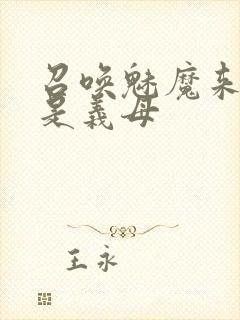 召唤魅魔来
是義母
王永